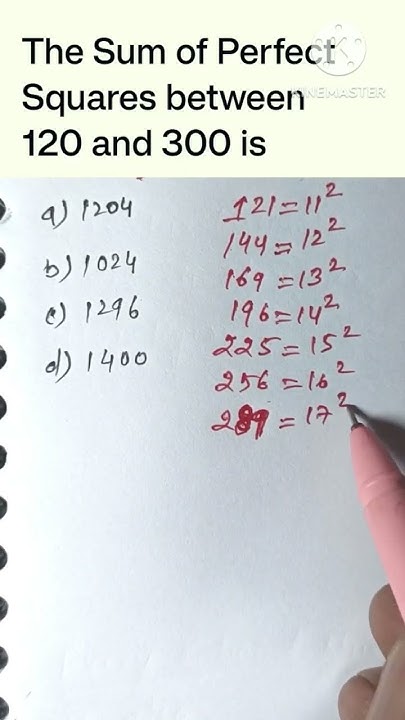 The Sum of Perfect
Squares between
120 and 300 is
KINEMASTER
a) 1204
b) 1024
c) 1296
d) 1400
121 = 11²
144 = 12²
169 = 13²
196 = 14²
225 = 15²
256 = 16²
289 = 17²